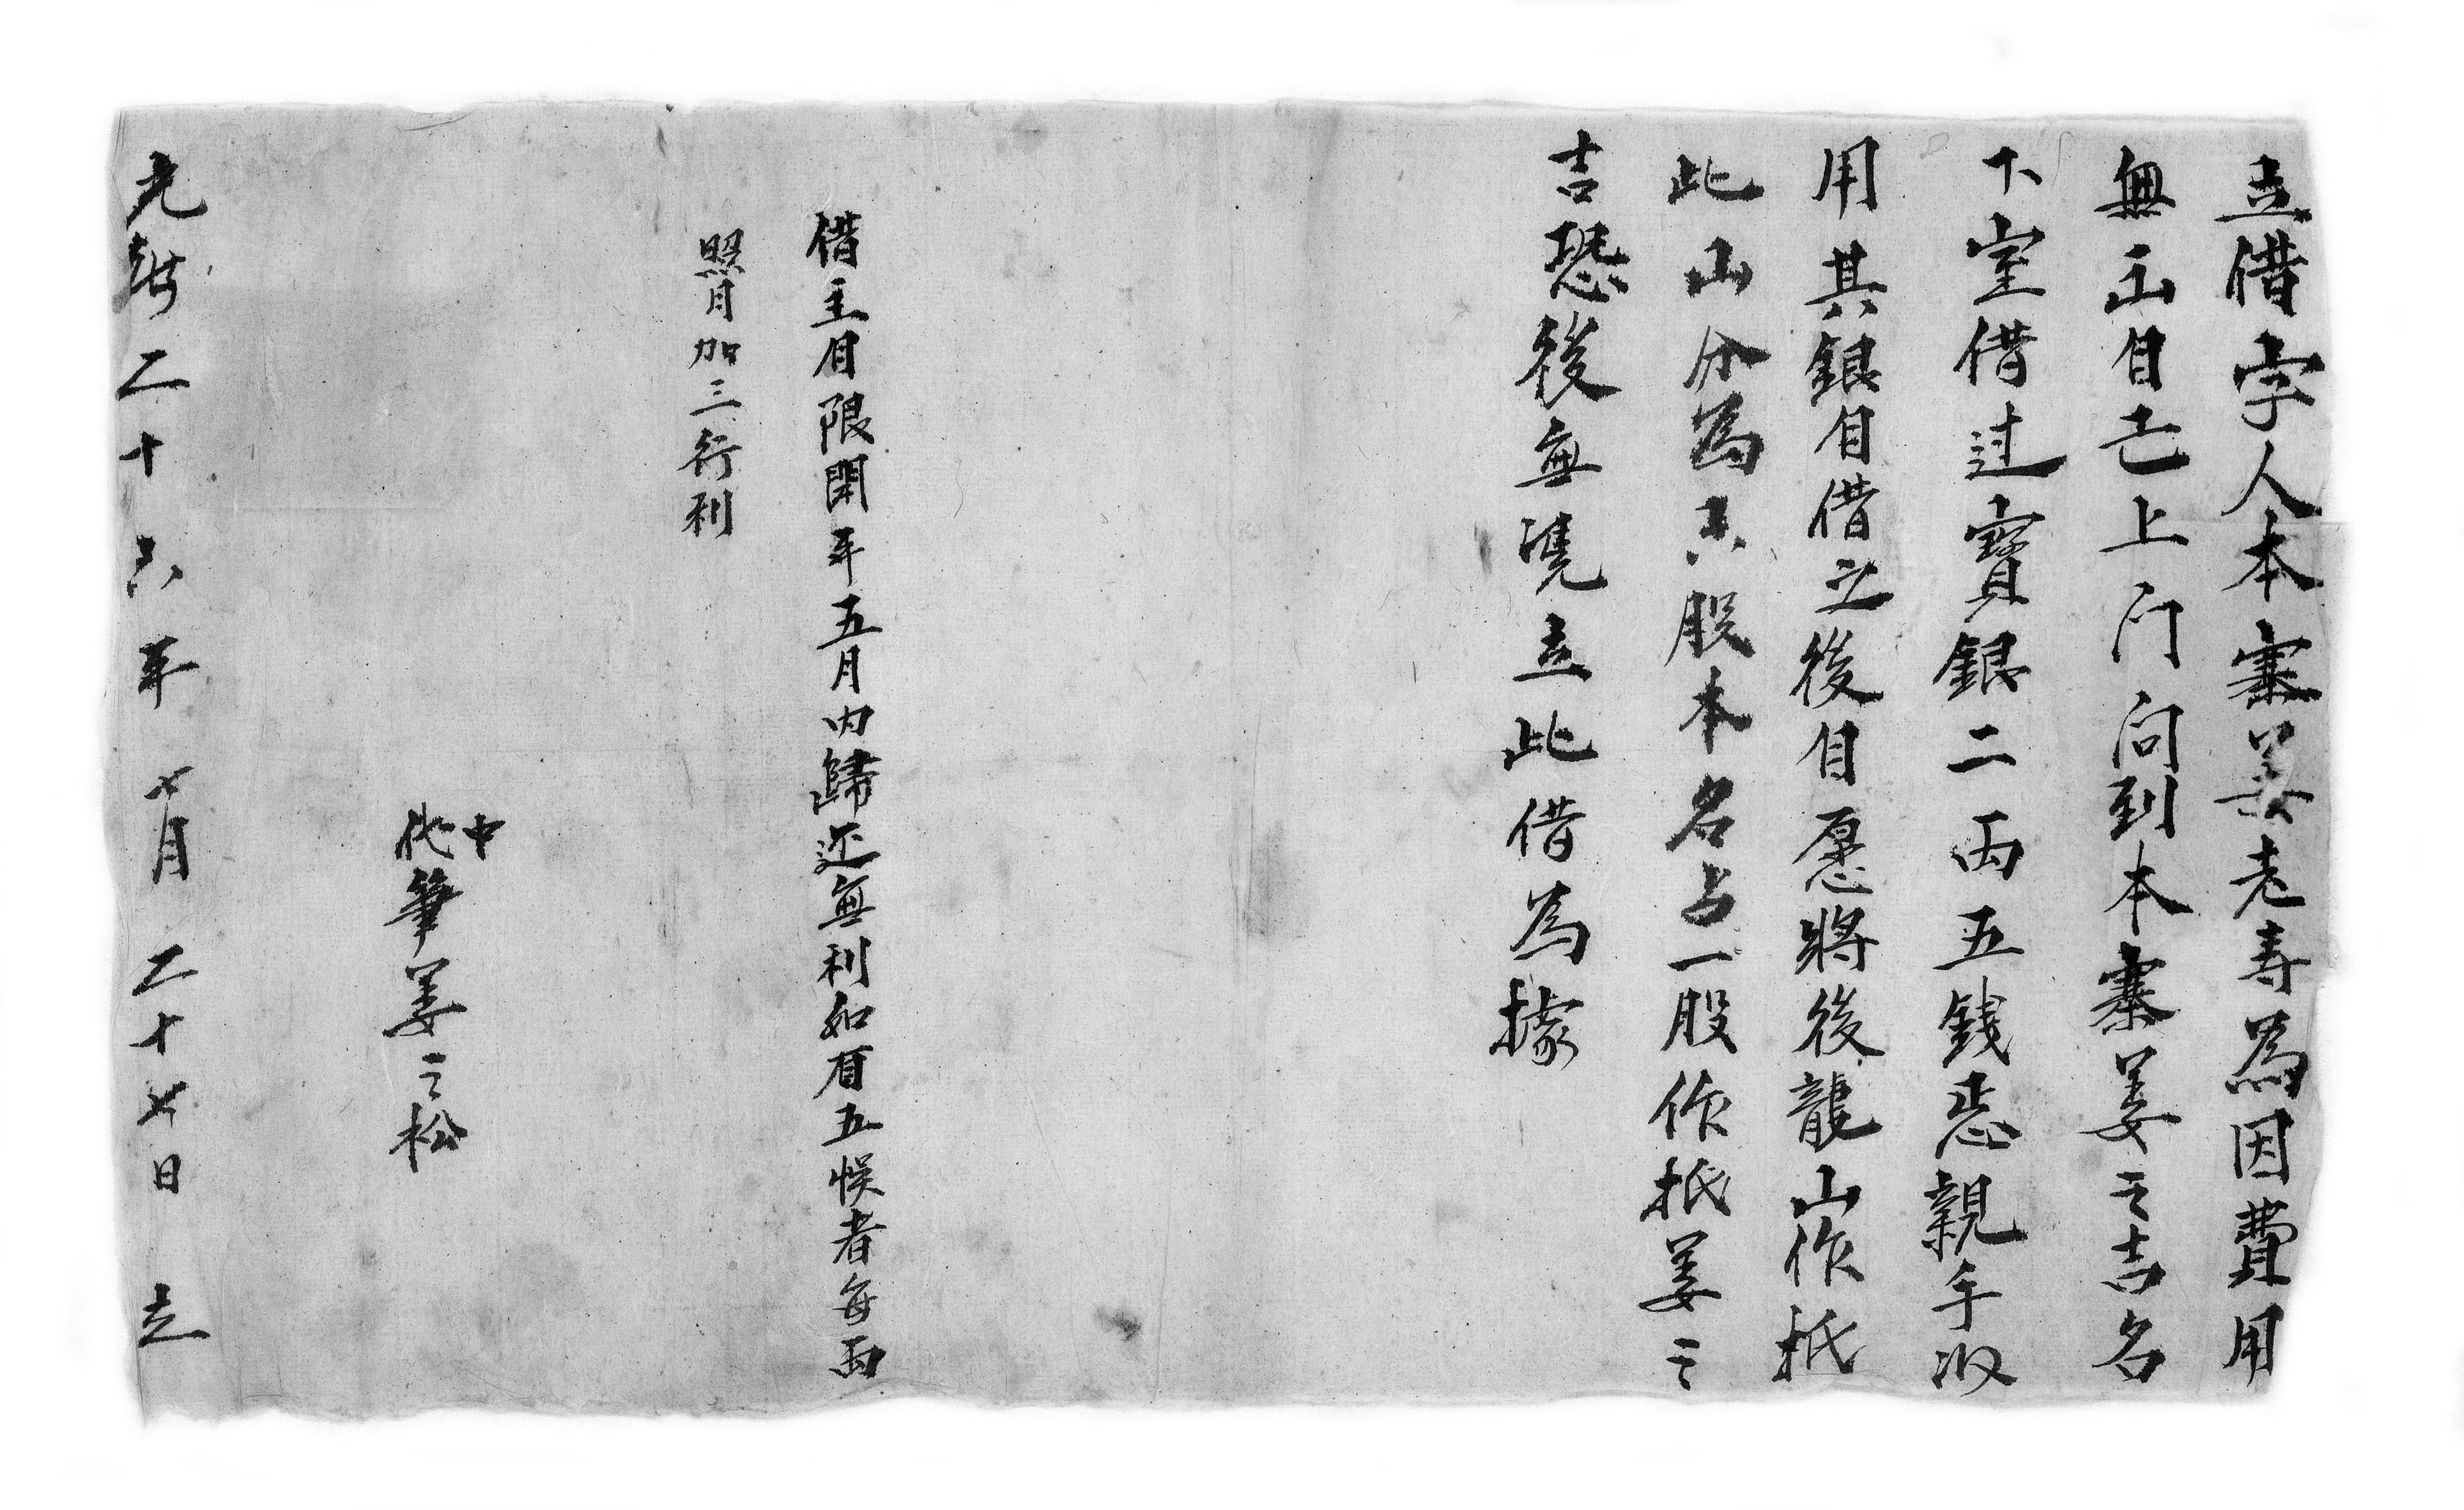 立借字人本寨姜老寿為因費用
無出自己上门问到本寨姜之吉名
下室借过寳銀二両五錢悉親手收
用其銀自借之後自愿將後龍山作抵
此山分為六股本名占一股作抵姜之
吉恐後無凴立此借為據
借主自限開年五月内歸还無利如有五悞者每両
照月加三行利
中
代筆姜之松
光緒二十六年七月二十七日立